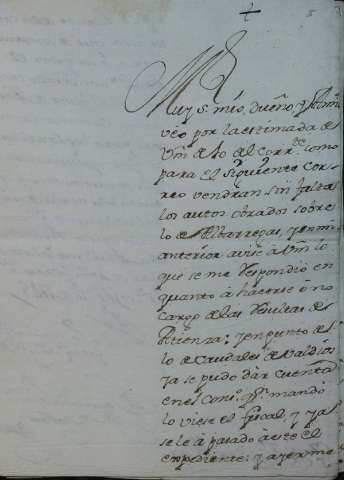 Muy s.r mio, dueño y estim.
veo por la estimada de
Vm de 10 del corr.te como
para el siguiente cor
reo vendran sin falta
los autos obrados sobre
lo de Albarregas, y en mi
anterior avise à Vm lo
que se me respondió en
quanto à hacerse ó no
cargo de las resultas de
Atienza; y en punto de
lo de caudales de Valdios
ya se pudo dàr cuenta
en el Cons.o q.n mandó
lo viese el fiscal y ya
se le à pasado àeste el
expediente: y ayer me